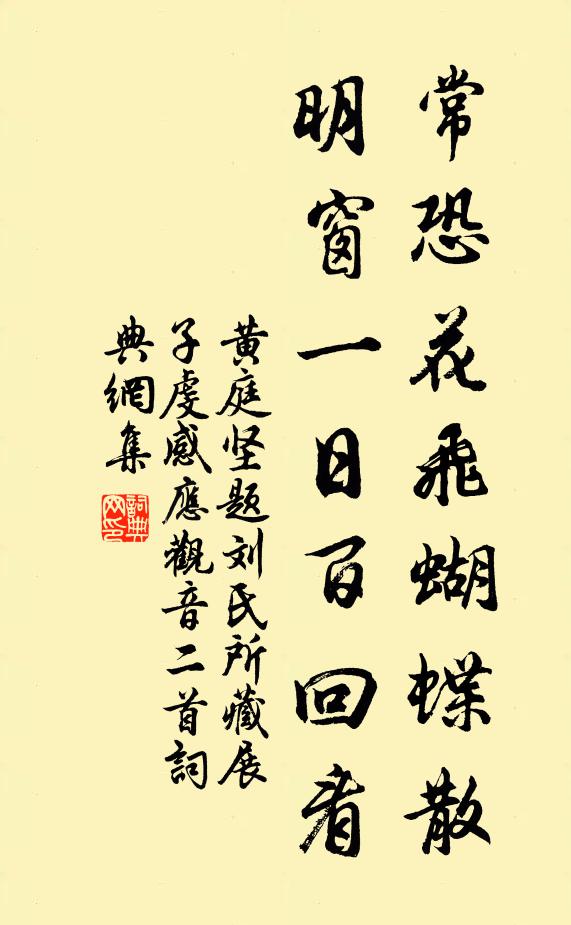 常恐花飛蝴蝶散
明窗一日百回看
黄庭坚题刘氏所藏展
子虔感應觀音二首詞
典網集
詞典
网印